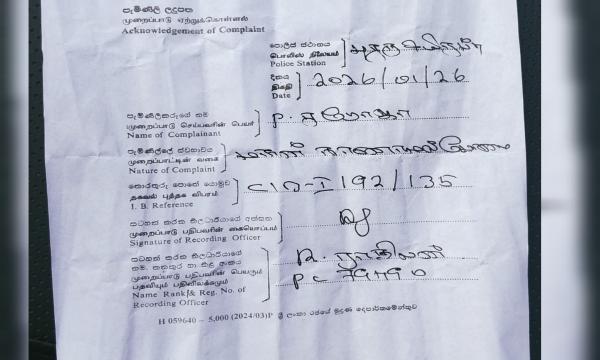 පැමිණිලි ලදුපත
முறைப்பாடு ஏற்றுக்கொள்ளல்
Acknowledgement of Complaint
පොලිස් ස්ථානය
பொலிஸ் நிலையம்
Police Station
දිනය
திகதி
Date
2026/01/26
පැමිණිලිකරුගේ නම
முறைப்பாடு செய்பவரின் பெயர்
Name of Complainant
P.
පැමිණිල්ලේ ස්වභාවය
முறைப்பாட்டின் வகை
Nature of Complaint
තොරතුරු පොතේ යොමුව
தகவல் புத்தக விபரம்
I. B. Reference
CIB-I 192/135
සටහන් කරන නිලධාරියාගේ අත්සන
முறைப்பாடு பதிபவரின் கையொப்பம்
Signature of Recording Officer
සටහන් කරන නිලධාරියාගේ
நම, තනතුර හා නිල අංකය
முறைப்பாடு பதிபவரின் பெயரும்
பதவியும் பதிவிலக்கமும்
Name Rank & Reg. No. of
Recording Officer
PC 79790
H 059640 – 5,000 (2024/03) P ශ්‍රී ලංකා රජයේ මුද්‍රණ දෙපාර්තමේන්තුව